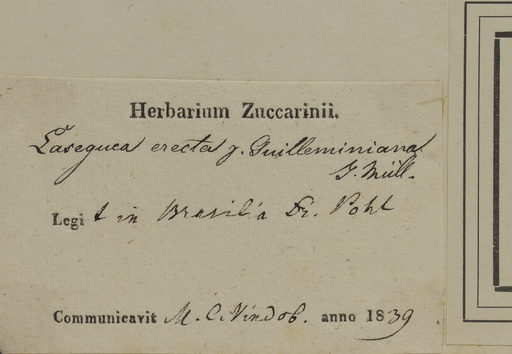 Herbarium Zuccarinii.
Laseguea erecta γ. Guilleminiana
J. Müll.
Legit in Brasilia Dr. Pohl
Communicavit M. C. Vindob. anno 1839